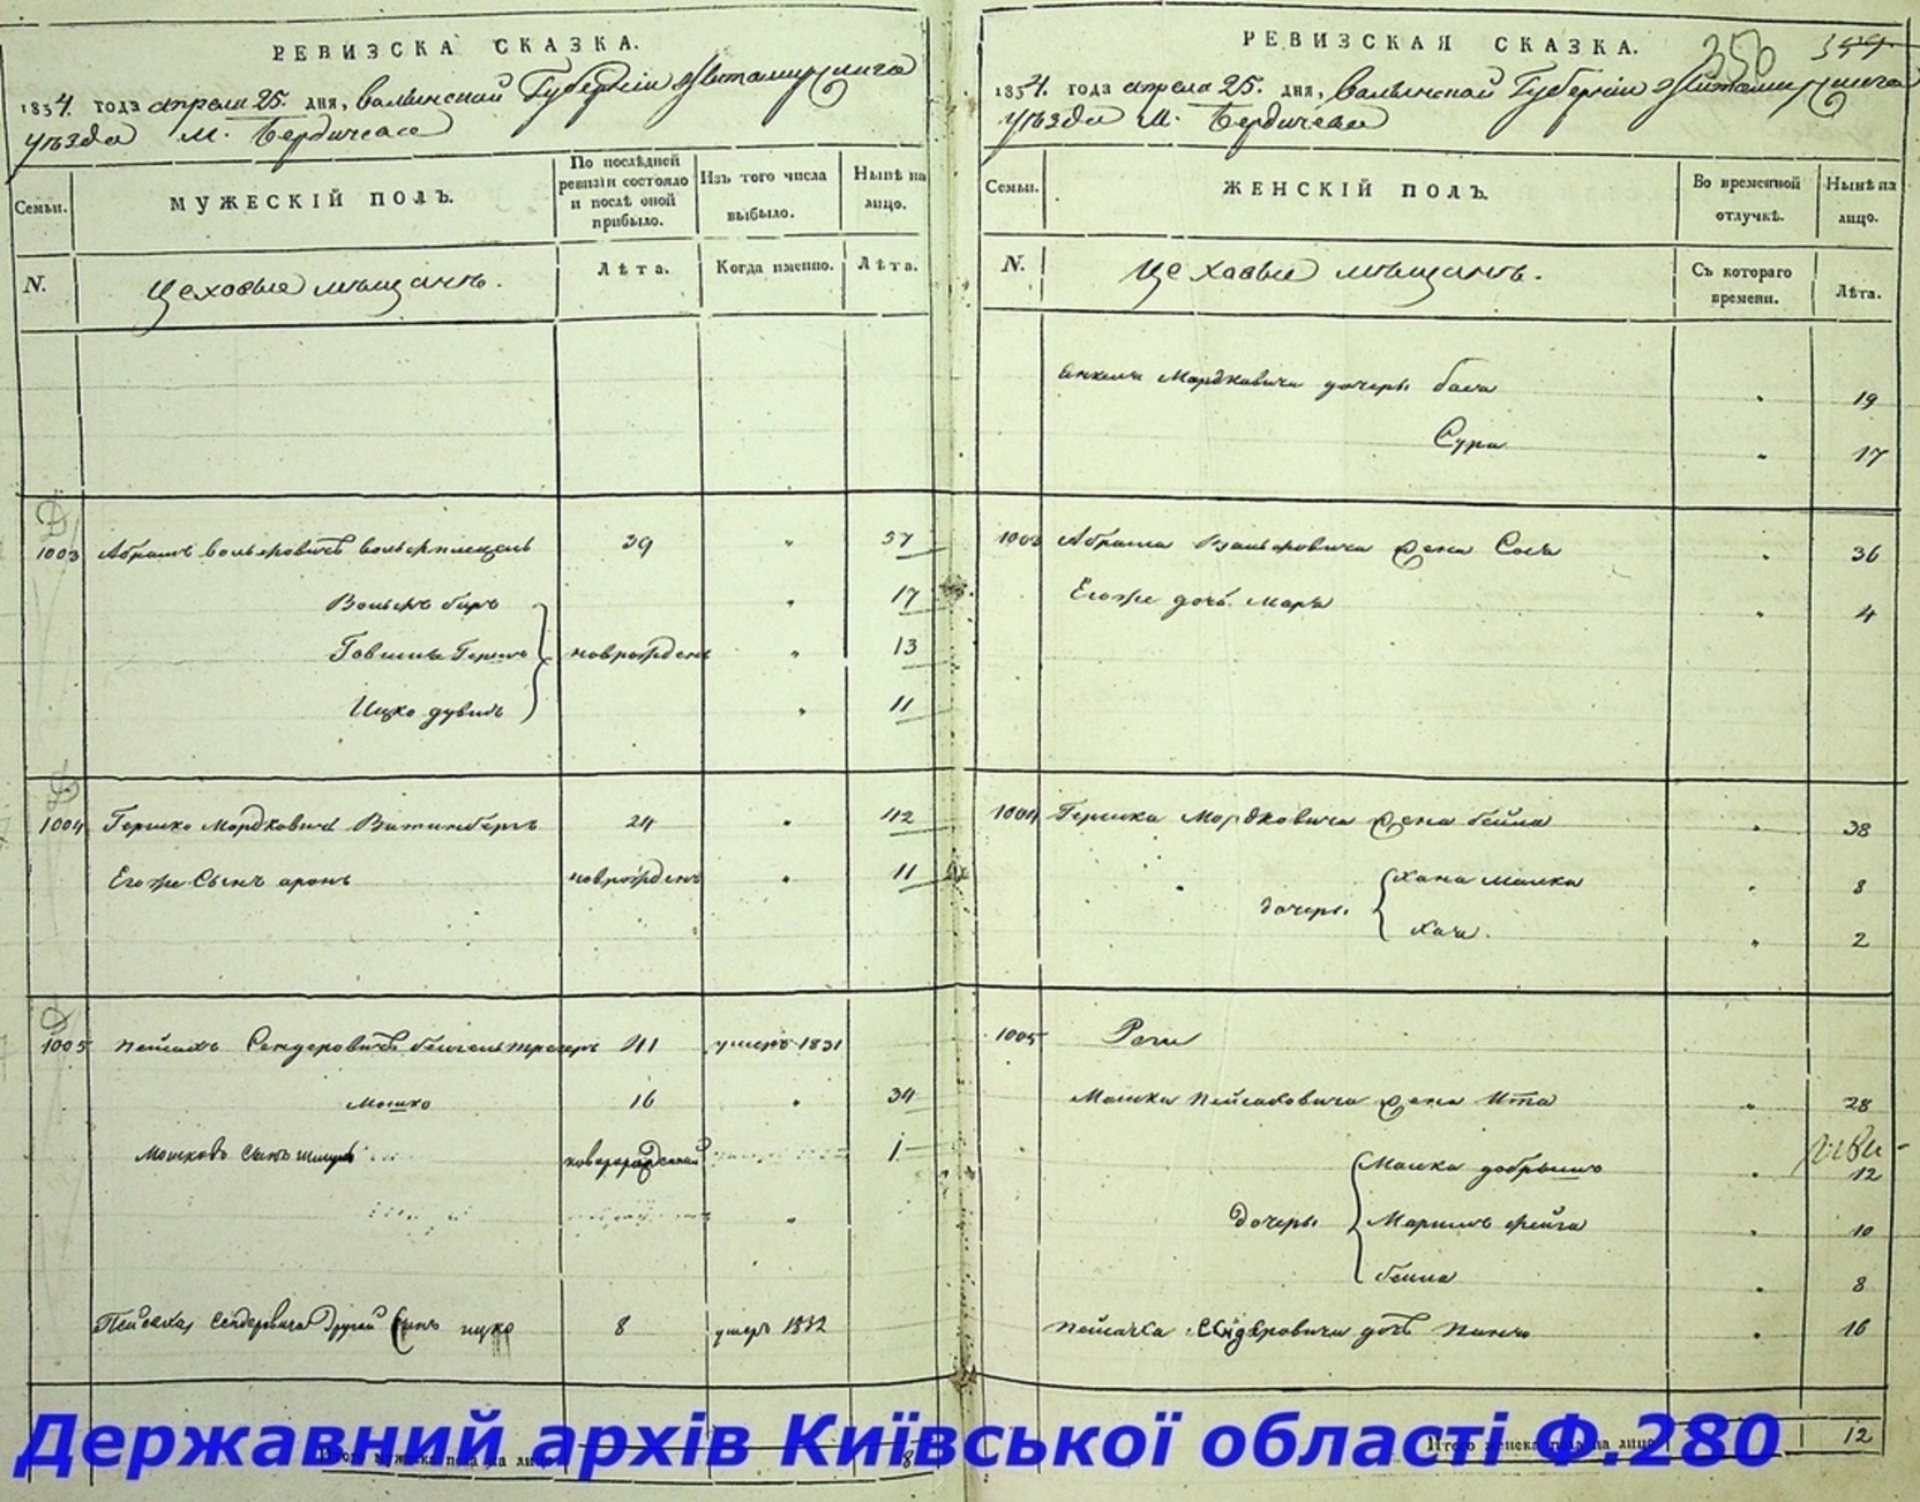 РЕВИЗСКА СКАЗКА.
1834 года апреля 25. дня, Волынской Губернии Житомирского
уѣзда м. Бердичева
Семьи.
МУЖЕСКІЙ ПОЛЪ.
По послѣдней ревизіи состояло и послѣ оной прибыло.
Изъ того числа выбыло.
Нынѣ на лицо.
N.
Цеховые мѣщанъ.
Лѣта.
Когда именно.
Лѣта.
1003 Абрамъ Вольфовичъ 39 " 37
Вольфъ беръ " 17
Гершъ новорожденъ " 13
Ицко дувидъ " 11
1004 Гершко Мордковичъ Витинбергъ 24 " 42
Егоже Сынъ аронъ новорожденъ " 11
1005 Пейсахъ Сендеровичъ 41 умеръ 1831
Мошко 16 " 34
Мошковъ сынъ новорожденный 1
Пейсаха Сендеровича Другой Сынъ ицко 8 умеръ 1832
Итого мужеска пола на лицо 8
РЕВИЗСКАЯ СКАЗКА.
350
1834. года апреля 25. дня, Волынской Губернии Житомирского
уѣзда м. Бердичева
Семьи.
ЖЕНСКІЙ ПОЛЪ.
Во временной отлучкѣ.
Нынѣ на лицо.
N.
Цеховые мѣщанъ.
Съ котораго времени.
Лѣта.
Мордковича дочери бася " 19
Сура " 17
1003 Абрама Вольфовича жена Сося " 36
Егоже дочь Маря " 4
1004 Гершка Мордковича жена бейла " 38
дочери { Хана Малка " 8
Хая. " 2
1005
Мошка Пейсаховича жена Ита " 28
Дочери { Малка добрышъ " 12
фейга " 10
бейла " 8
Пейсаха Сендеровича дочь " 16
Итого женска пола на лицо 12
Державний архів Київської області Ф.280